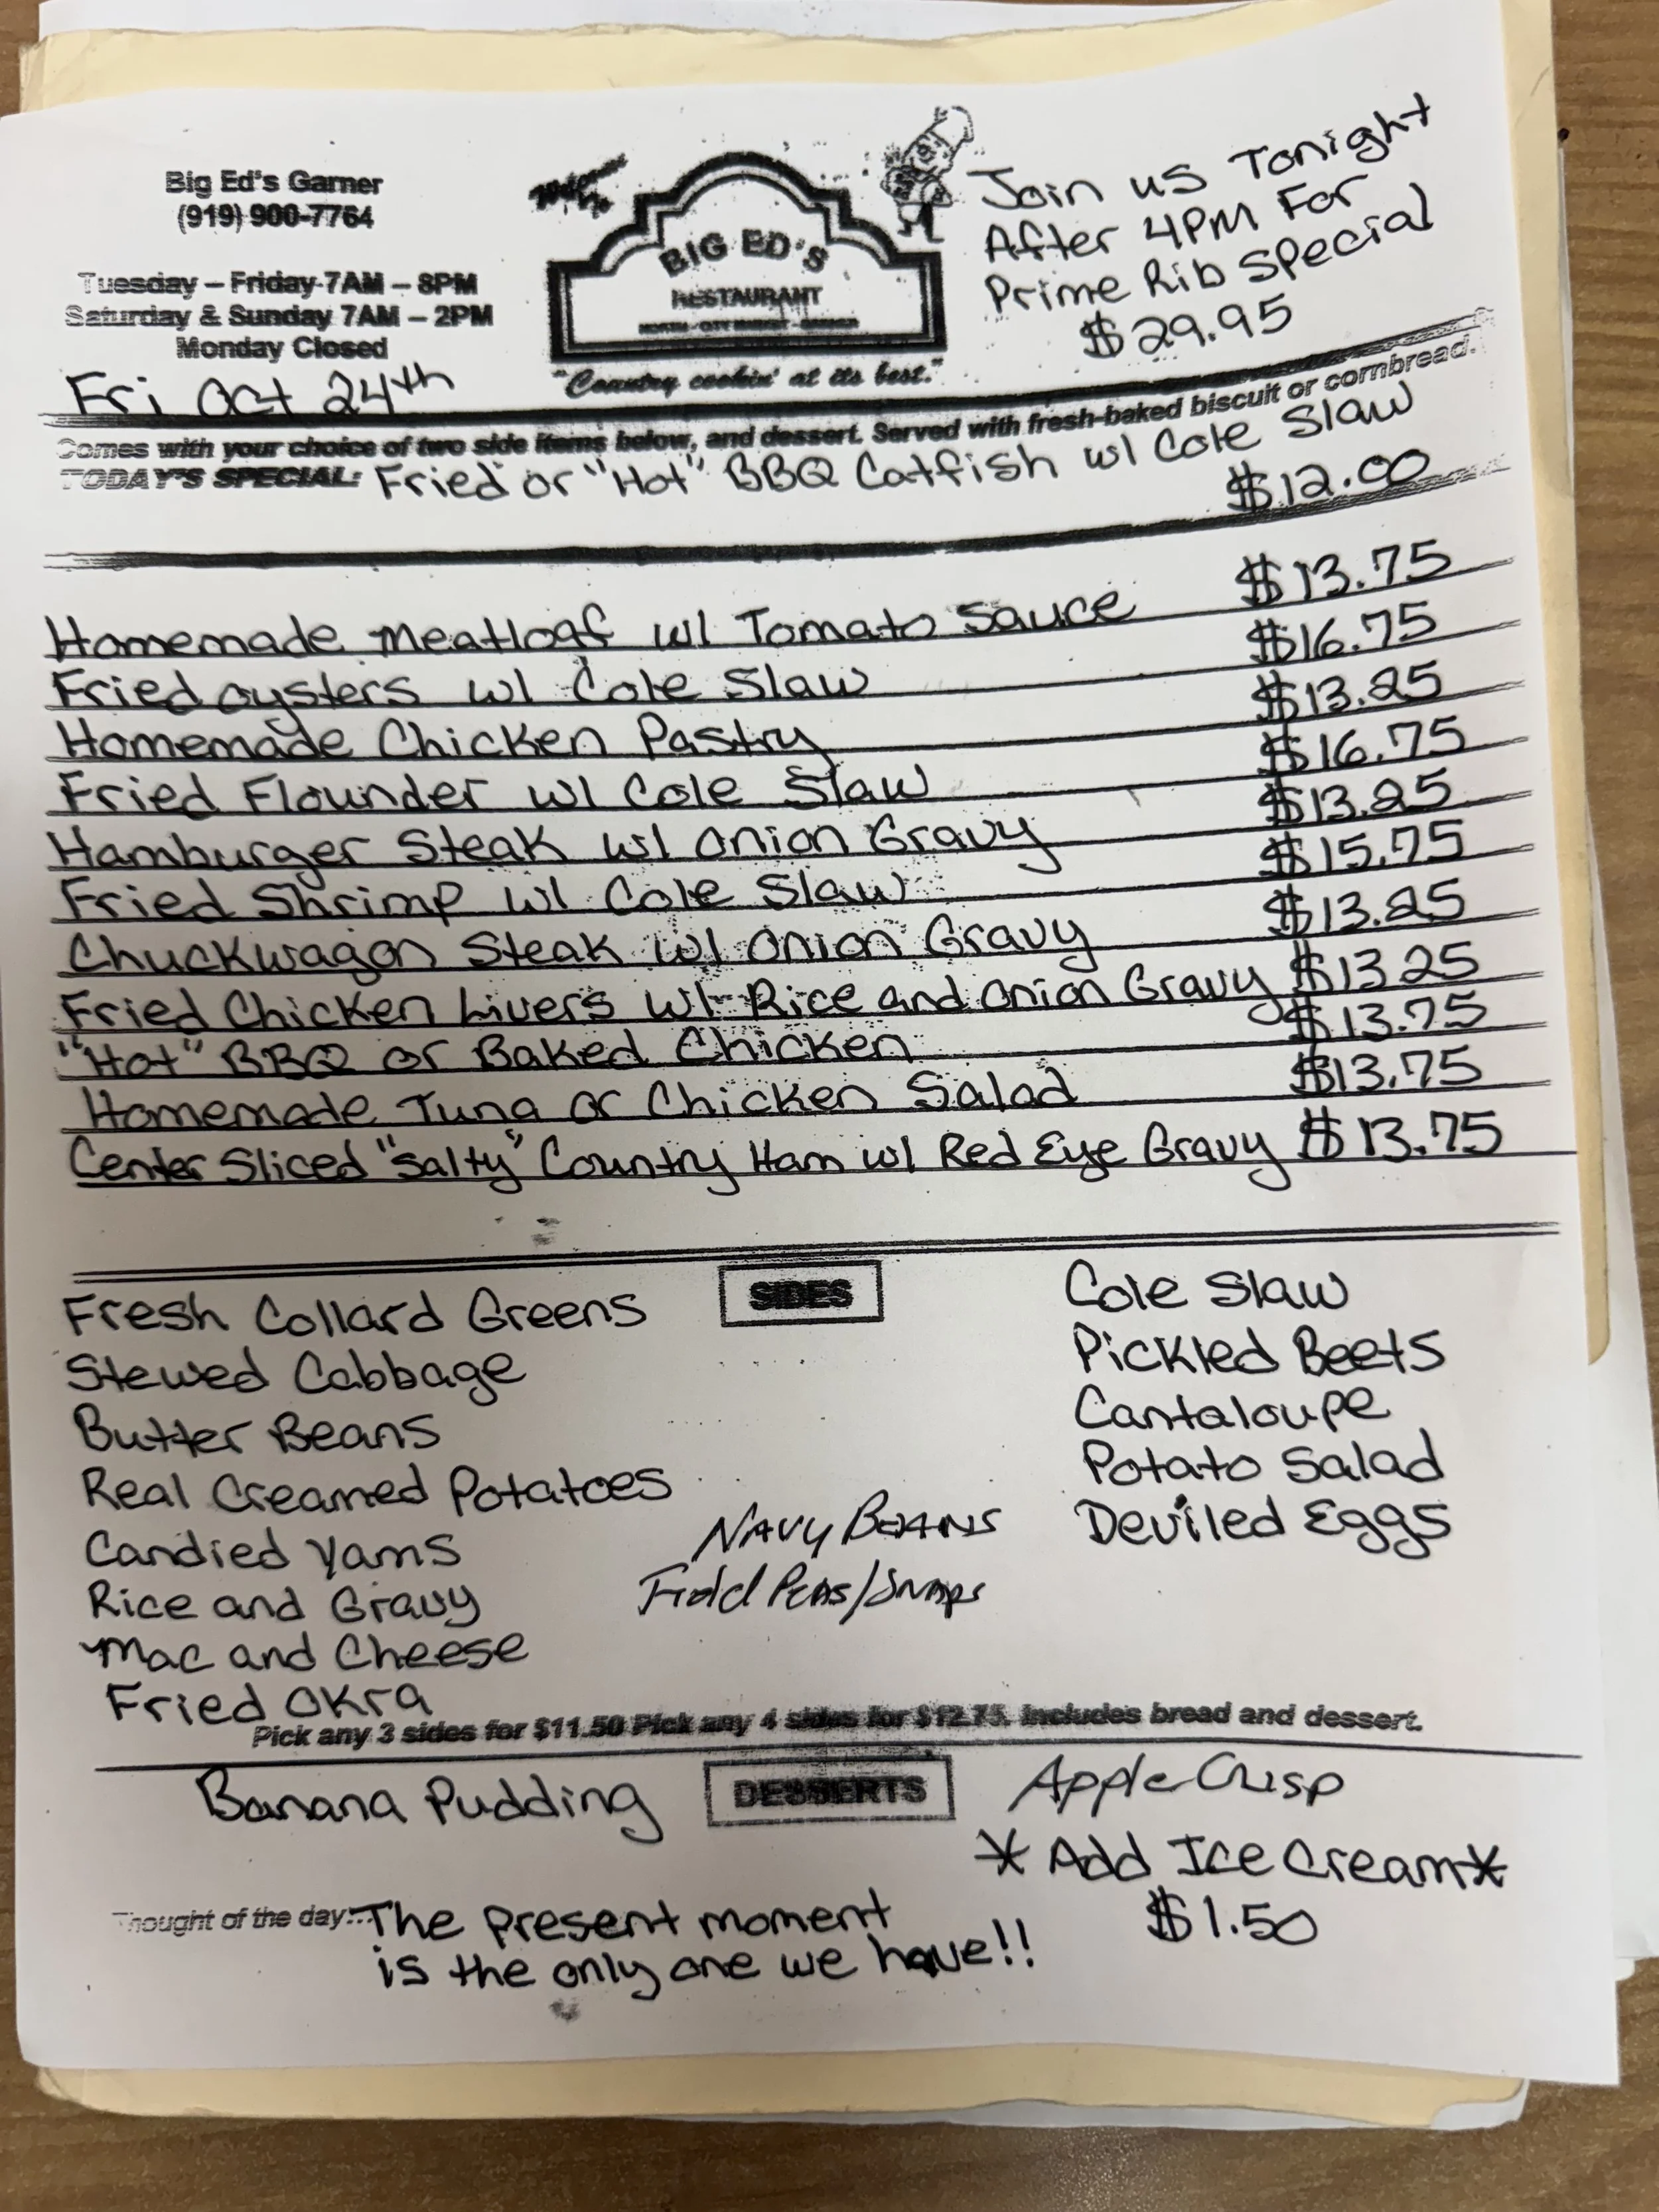 Big Ed's Garner
(919) 900-7764
Tuesday – Friday 7AM – 8PM
Saturday & Sunday 7AM – 2PM
Monday Closed
Fri Oct 24th
BIG ED'S
RESTAURANT
NORTH - CITY MARKET - GARNER
"Country cookin' at its best."
Join us Tonight
After 4PM For
Prime Rib Special
$29.95
Comes with your choice of two side items below, and dessert. Served with fresh-baked biscuit or cornbread.
TODAY'S SPECIAL: Fried or "Hot" BBQ Catfish w/ Cole Slaw
$12.00
Homemade Meatloaf w/ Tomato Sauce $13.75
Fried Oysters w/ Cole Slaw $16.75
Homemade Chicken Pastry $13.25
Fried Flounder w/ Cole Slaw $16.75
Hamburger Steak w/ Onion Gravy $13.25
Fried Shrimp w/ Cole Slaw $15.75
Chuckwagon Steak w/ Onion Gravy $13.25
Fried Chicken Livers w/ Rice and Onion Gravy $13.25
"Hot" BBQ or Baked Chicken $13.75
Homemade Tuna or Chicken Salad $13.75
Center Sliced "Salty" Country Ham w/ Red Eye Gravy $13.75
SIDES
Fresh Collard Greens
Stewed Cabbage
Butter Beans
Real Creamed Potatoes
Candied Yams
Rice and Gravy
Mac and Cheese
Fried Okra
Navy Beans
Field Peas/Snaps
Cole Slaw
Pickled Beets
Cantaloupe
Potato Salad
Deviled Eggs
Pick any 3 sides for $11.50 Pick any 4 sides for $12.75. Includes bread and dessert.
DESSERTS
Banana Pudding
Apple Crisp
*Add Ice Cream*
$1.50
Thought of the day:... The present moment
is the only one we have!!